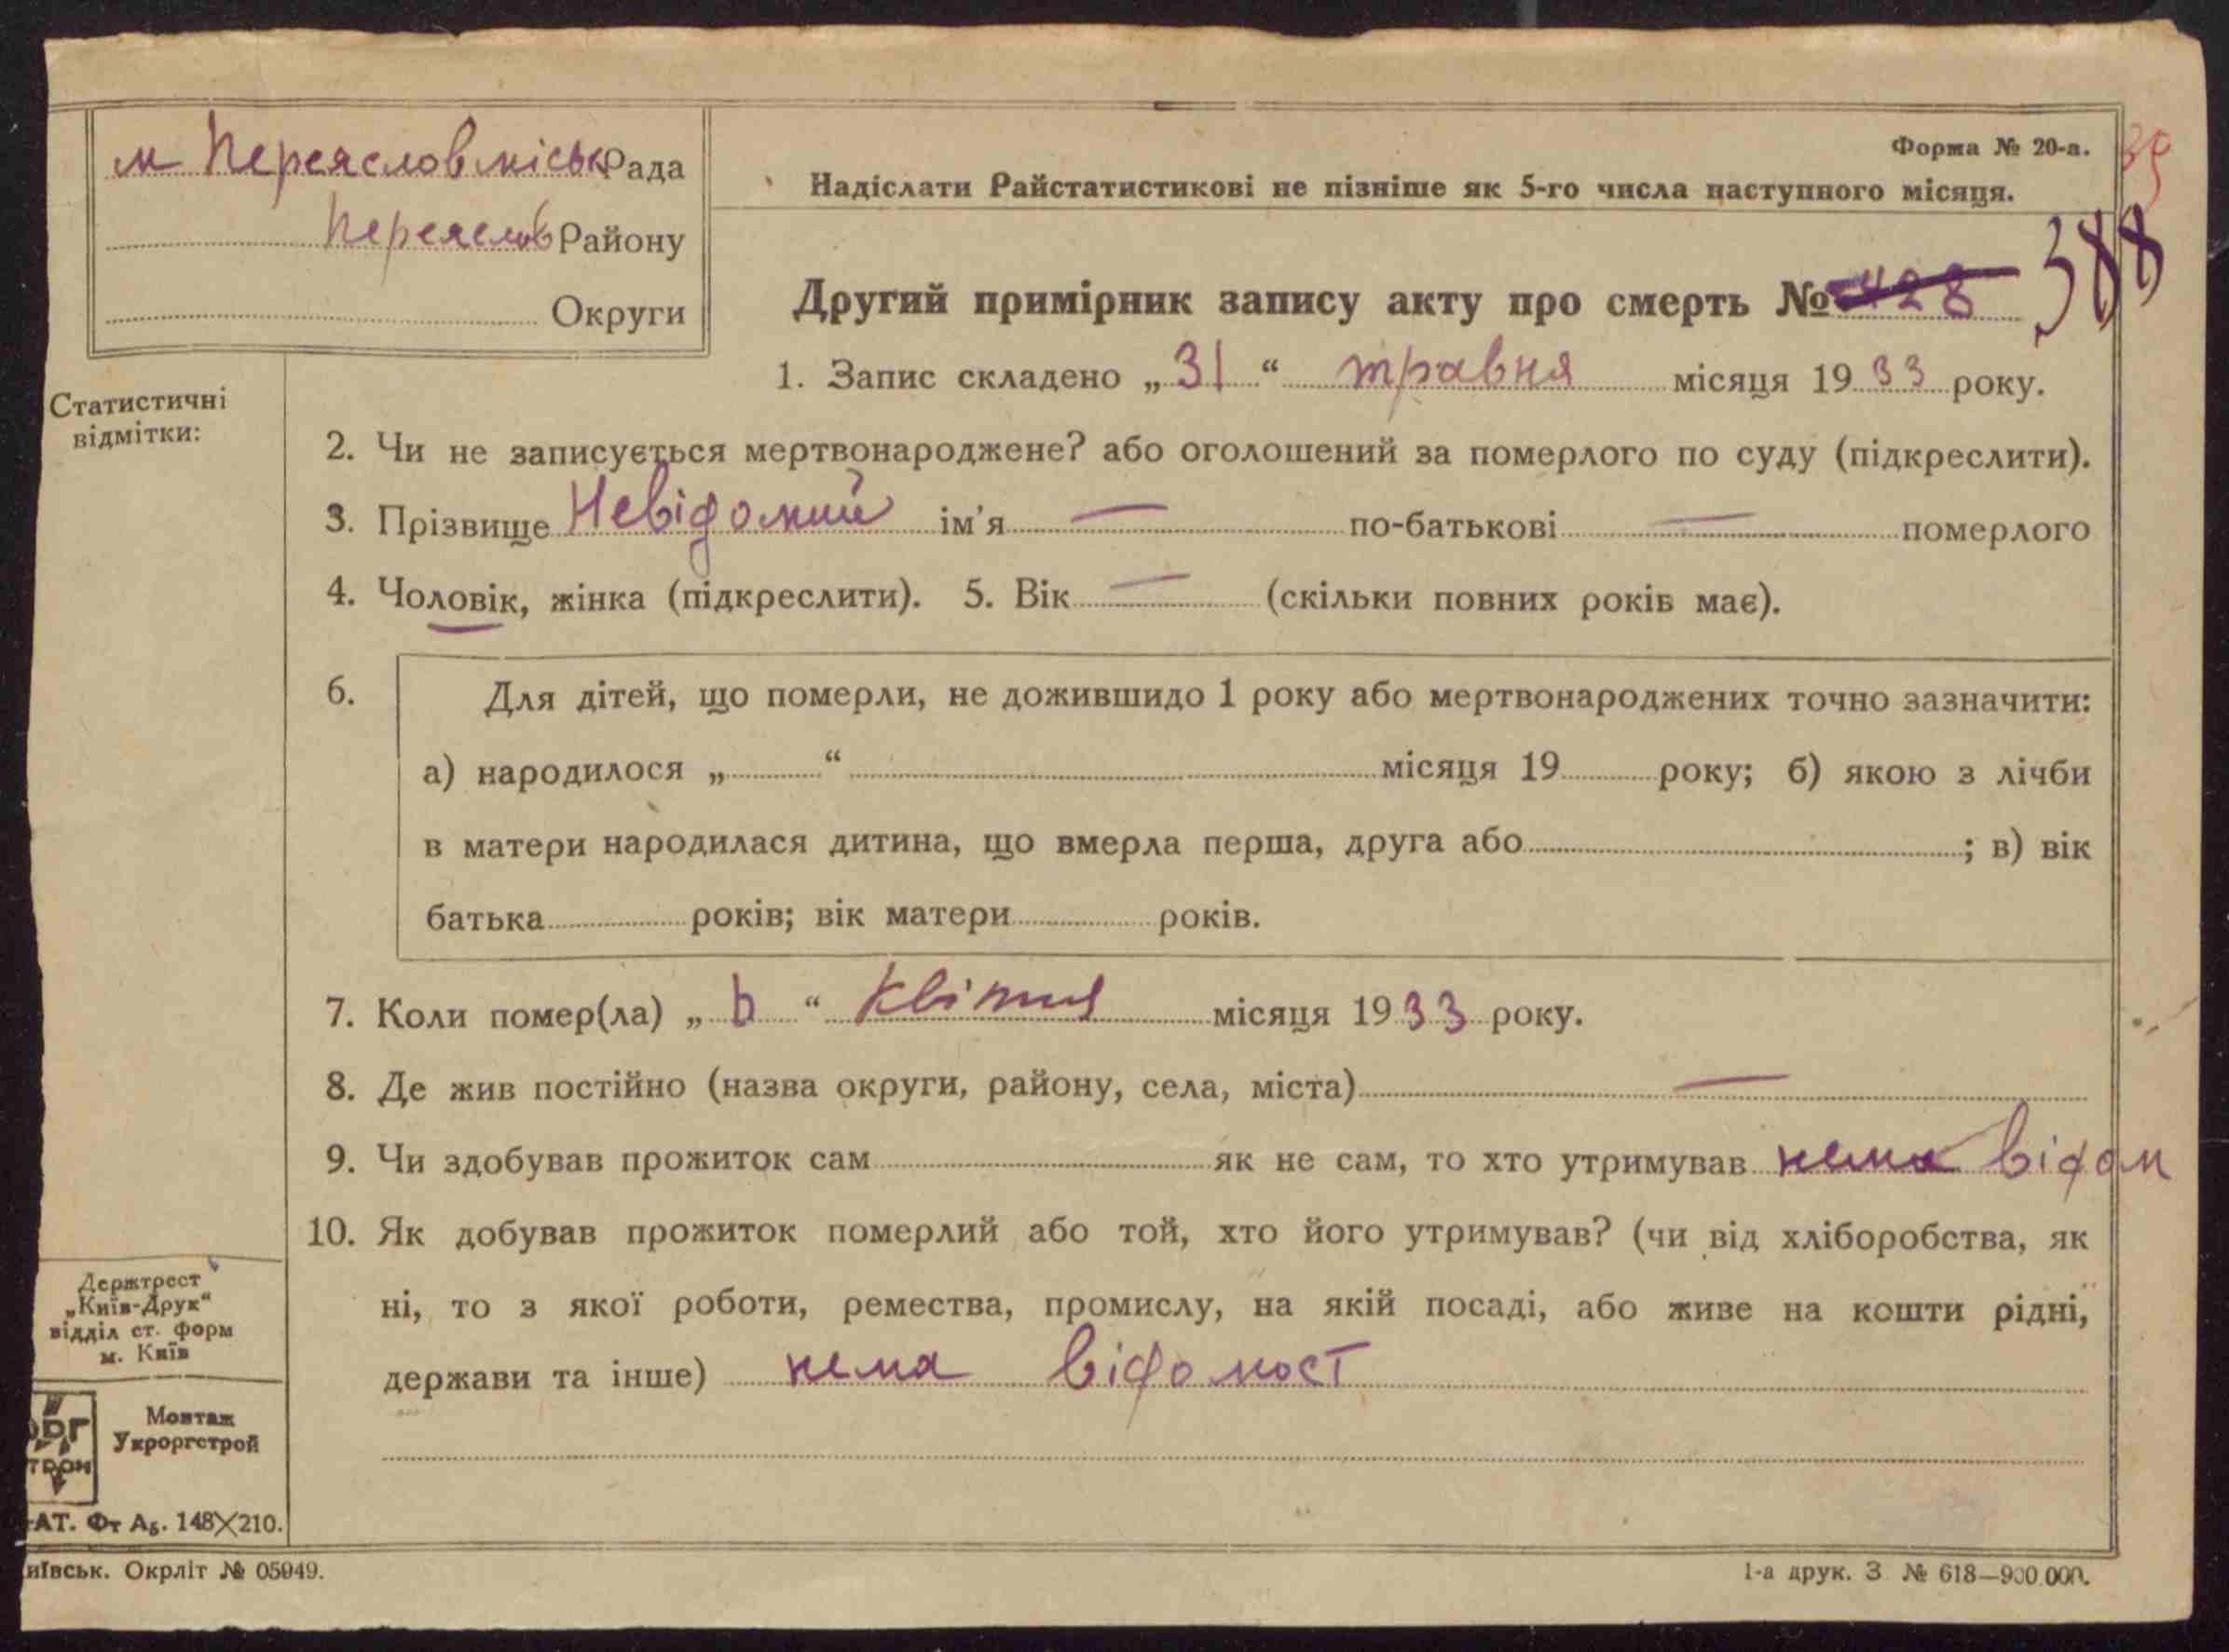 м Переяслов міськ Рада
Переяслов Району
Округи
Форма № 20-а.
Надіслати Райстатистикові не пізніше як 5-го числа наступного місяця.
Другий примірник запису акту про смерть № 428 388
1. Запис складено „31“ травня місяця 1933 року.
Статистичні
відмітки:
2. Чи не записується мертвонароджене? або оголошений за померлого по суду (підкреслити).
3. Прізвище Невідомий ім'я — по-батькові — померлого
4. Чоловік, жінка (підкреслити). 5. Вік — (скільки повних років має).
6. Для дітей, що померли, не дожившидо 1 року або мертвонароджених точно зазначити:
а) народилося „ “ місяця 19 року; б) якою з лічби
в матери народилася дитина, що вмерла перша, друга або ; в) вік
батька років; вік матери років.
7. Коли помер(ла) „ “ Квітня місяця 1933 року.
8. Де жив постійно (назва округи, району, села, міста) —
9. Чи здобував прожиток сам як не сам, то хто утримував нема відом
10. Як добував прожиток померлий або той, хто його утримував? (чи від хліборобства, як
ні, то з якої роботи, ремества, промислу, на якій посаді, або живе на кошти рідні,
держави та інше) нема відомост
Держтрест
„Київ-Друк“
відділ ст. форм
м. Київ
Монтаж
Укроргстрой
АТ. Фт А5. 148×210.
иївськ. Окрліт № 05949.
1-а друк. З № 618—900.000.